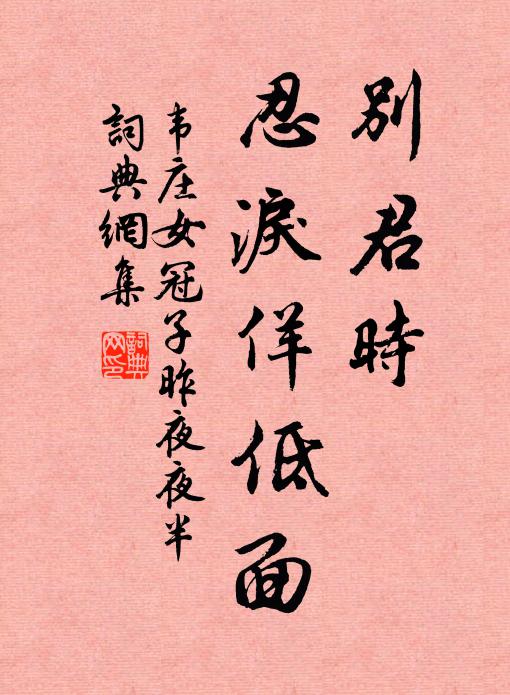 別君時
忍淚佯低面
韦庄女冠子昨夜夜半
詞典網集
詞典网印